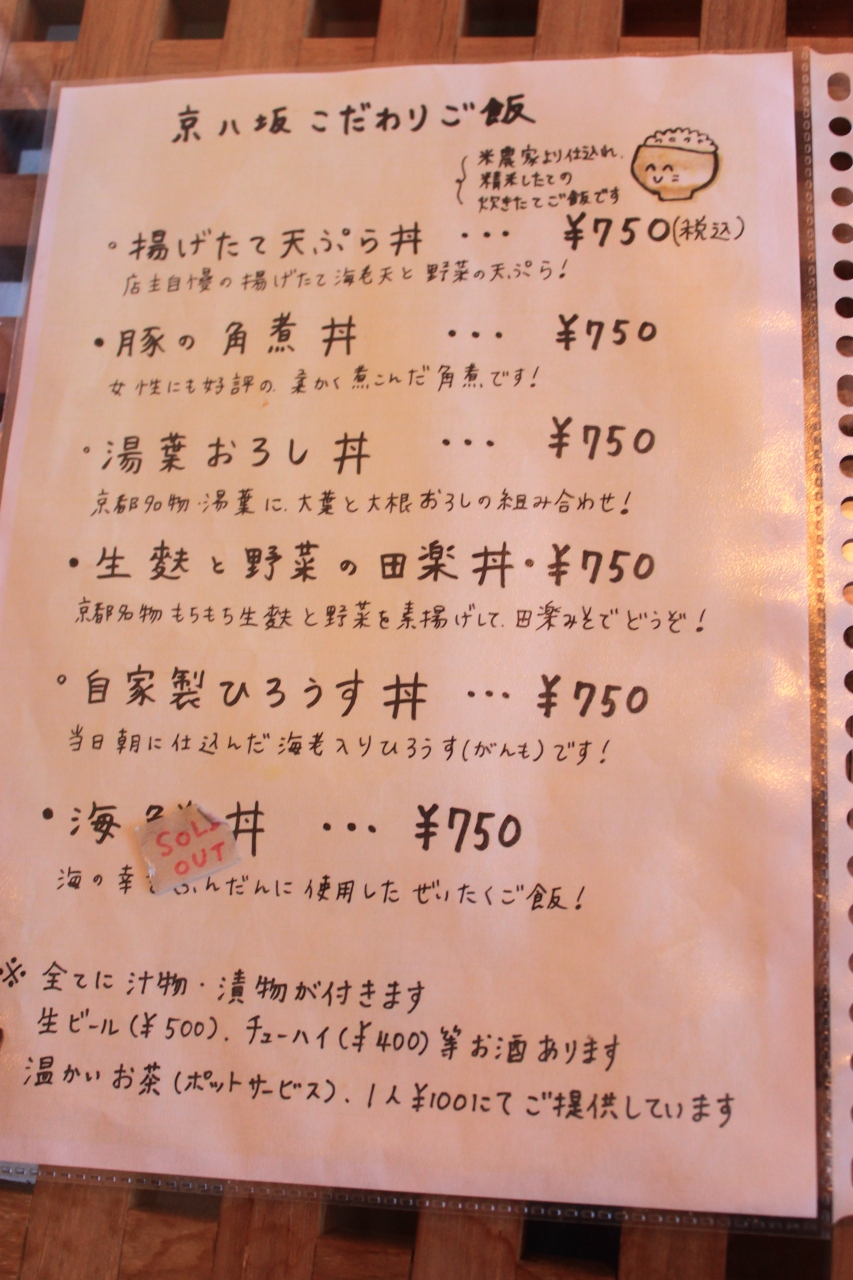 京八坂こだわりご飯
米農家より仕込れ、
精米したての
炊きたてご飯です
揚げたて天ぷら丼 ・・・ ¥750(税込)
店主自慢の揚げたて海老天と野菜の天ぷら!
・豚の角煮丼 ・・・ ¥750
女性にも好評の、柔かく煮こんだ角煮です!
湯葉おろし丼 ・・・ ¥750
京都名物・湯葉に、大葉と大根おろしの組み合わせ!
・生麩と野菜の田楽丼・¥750
京都名物もちもち生麩と野菜を素揚げして、田楽みそでどうぞ!
自家製ひろうす丼 ・・・ ¥750
当日朝に仕込んだ海老入りひろうす(がんも)です!
・海 丼 ・・・ ¥750
SOLD
OUT
海の幸 ふんだんに使用したぜいたくご飯!
※全てに汁物・漬物が付きます
生ビール(¥500)、チューハイ(¥400)等お酒あります
温かいお茶(ポットサービス)、1人¥100にてご提供しています